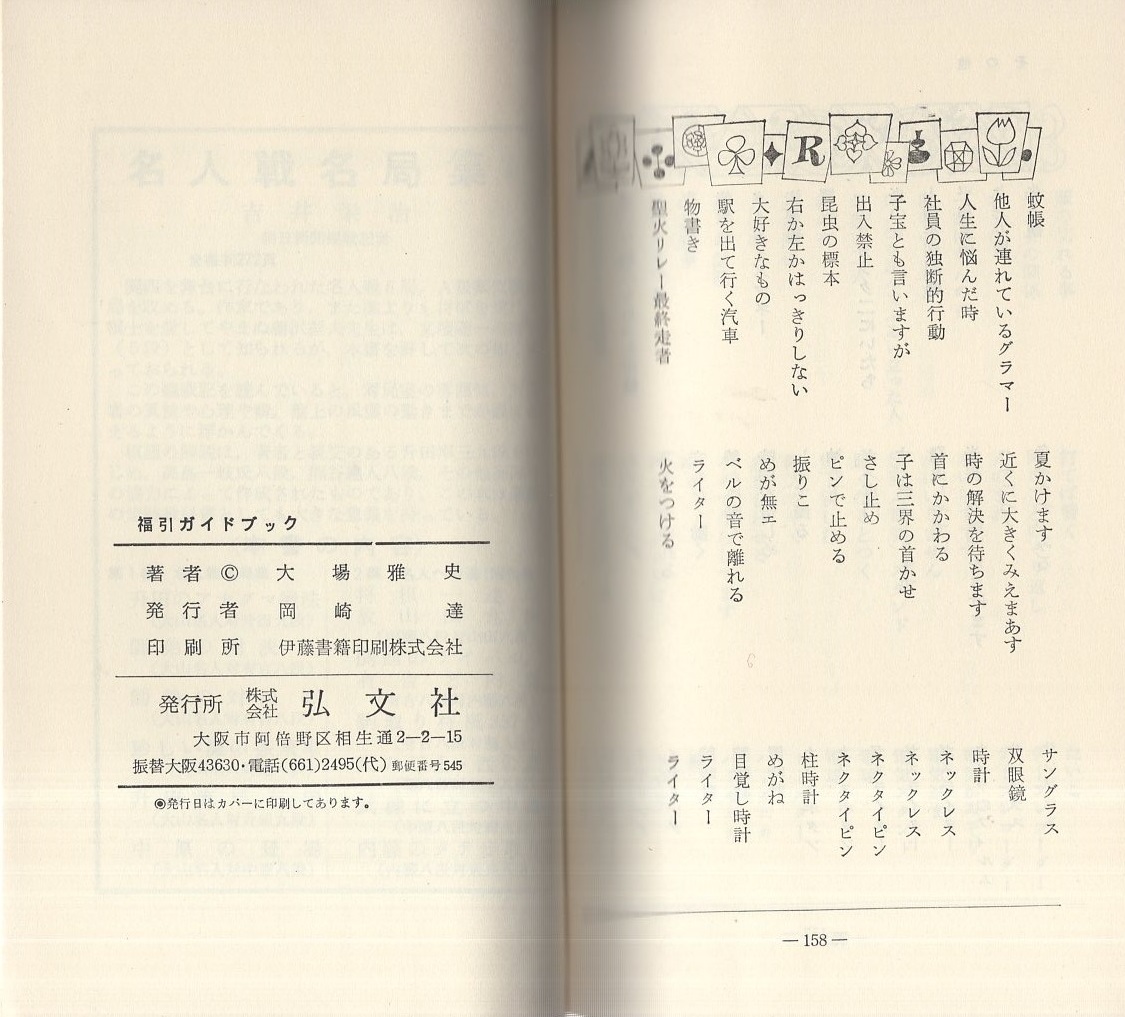 蚊帳 夏かけます サングラス
他人が連れているグラマー 近くに大きくみえまあす 双眼鏡
人生に悩んだ時 時の解決を待ちます 時計
社員の独断的行動 首にかかわる ネックレス
子宝とも言いますが 子は三界の首かせ ネックレス
出入禁止 さし止め ネクタイピン
昆虫の標本 ピンで止める ネクタイピン
右か左かはっきりしない 振りこ 柱時計
大好きなもの めが無エ めがね
駅を出て行く汽車 ベルの音で離れる 目覚し時計
物書き ライター ライター
聖火リレー最終走者 火をつける ライター
R
— 158 —
福引ガイドブック
著者 © 大場雅史
発行者 岡崎達
印刷所 伊藤書籍印刷株式会社
発行所 株式会社 弘文社
大阪市阿倍野区相生通2—2—15
振替大阪43630・電話(661)2495(代) 郵便番号545
◉発行日はカバーに印刷してあります。